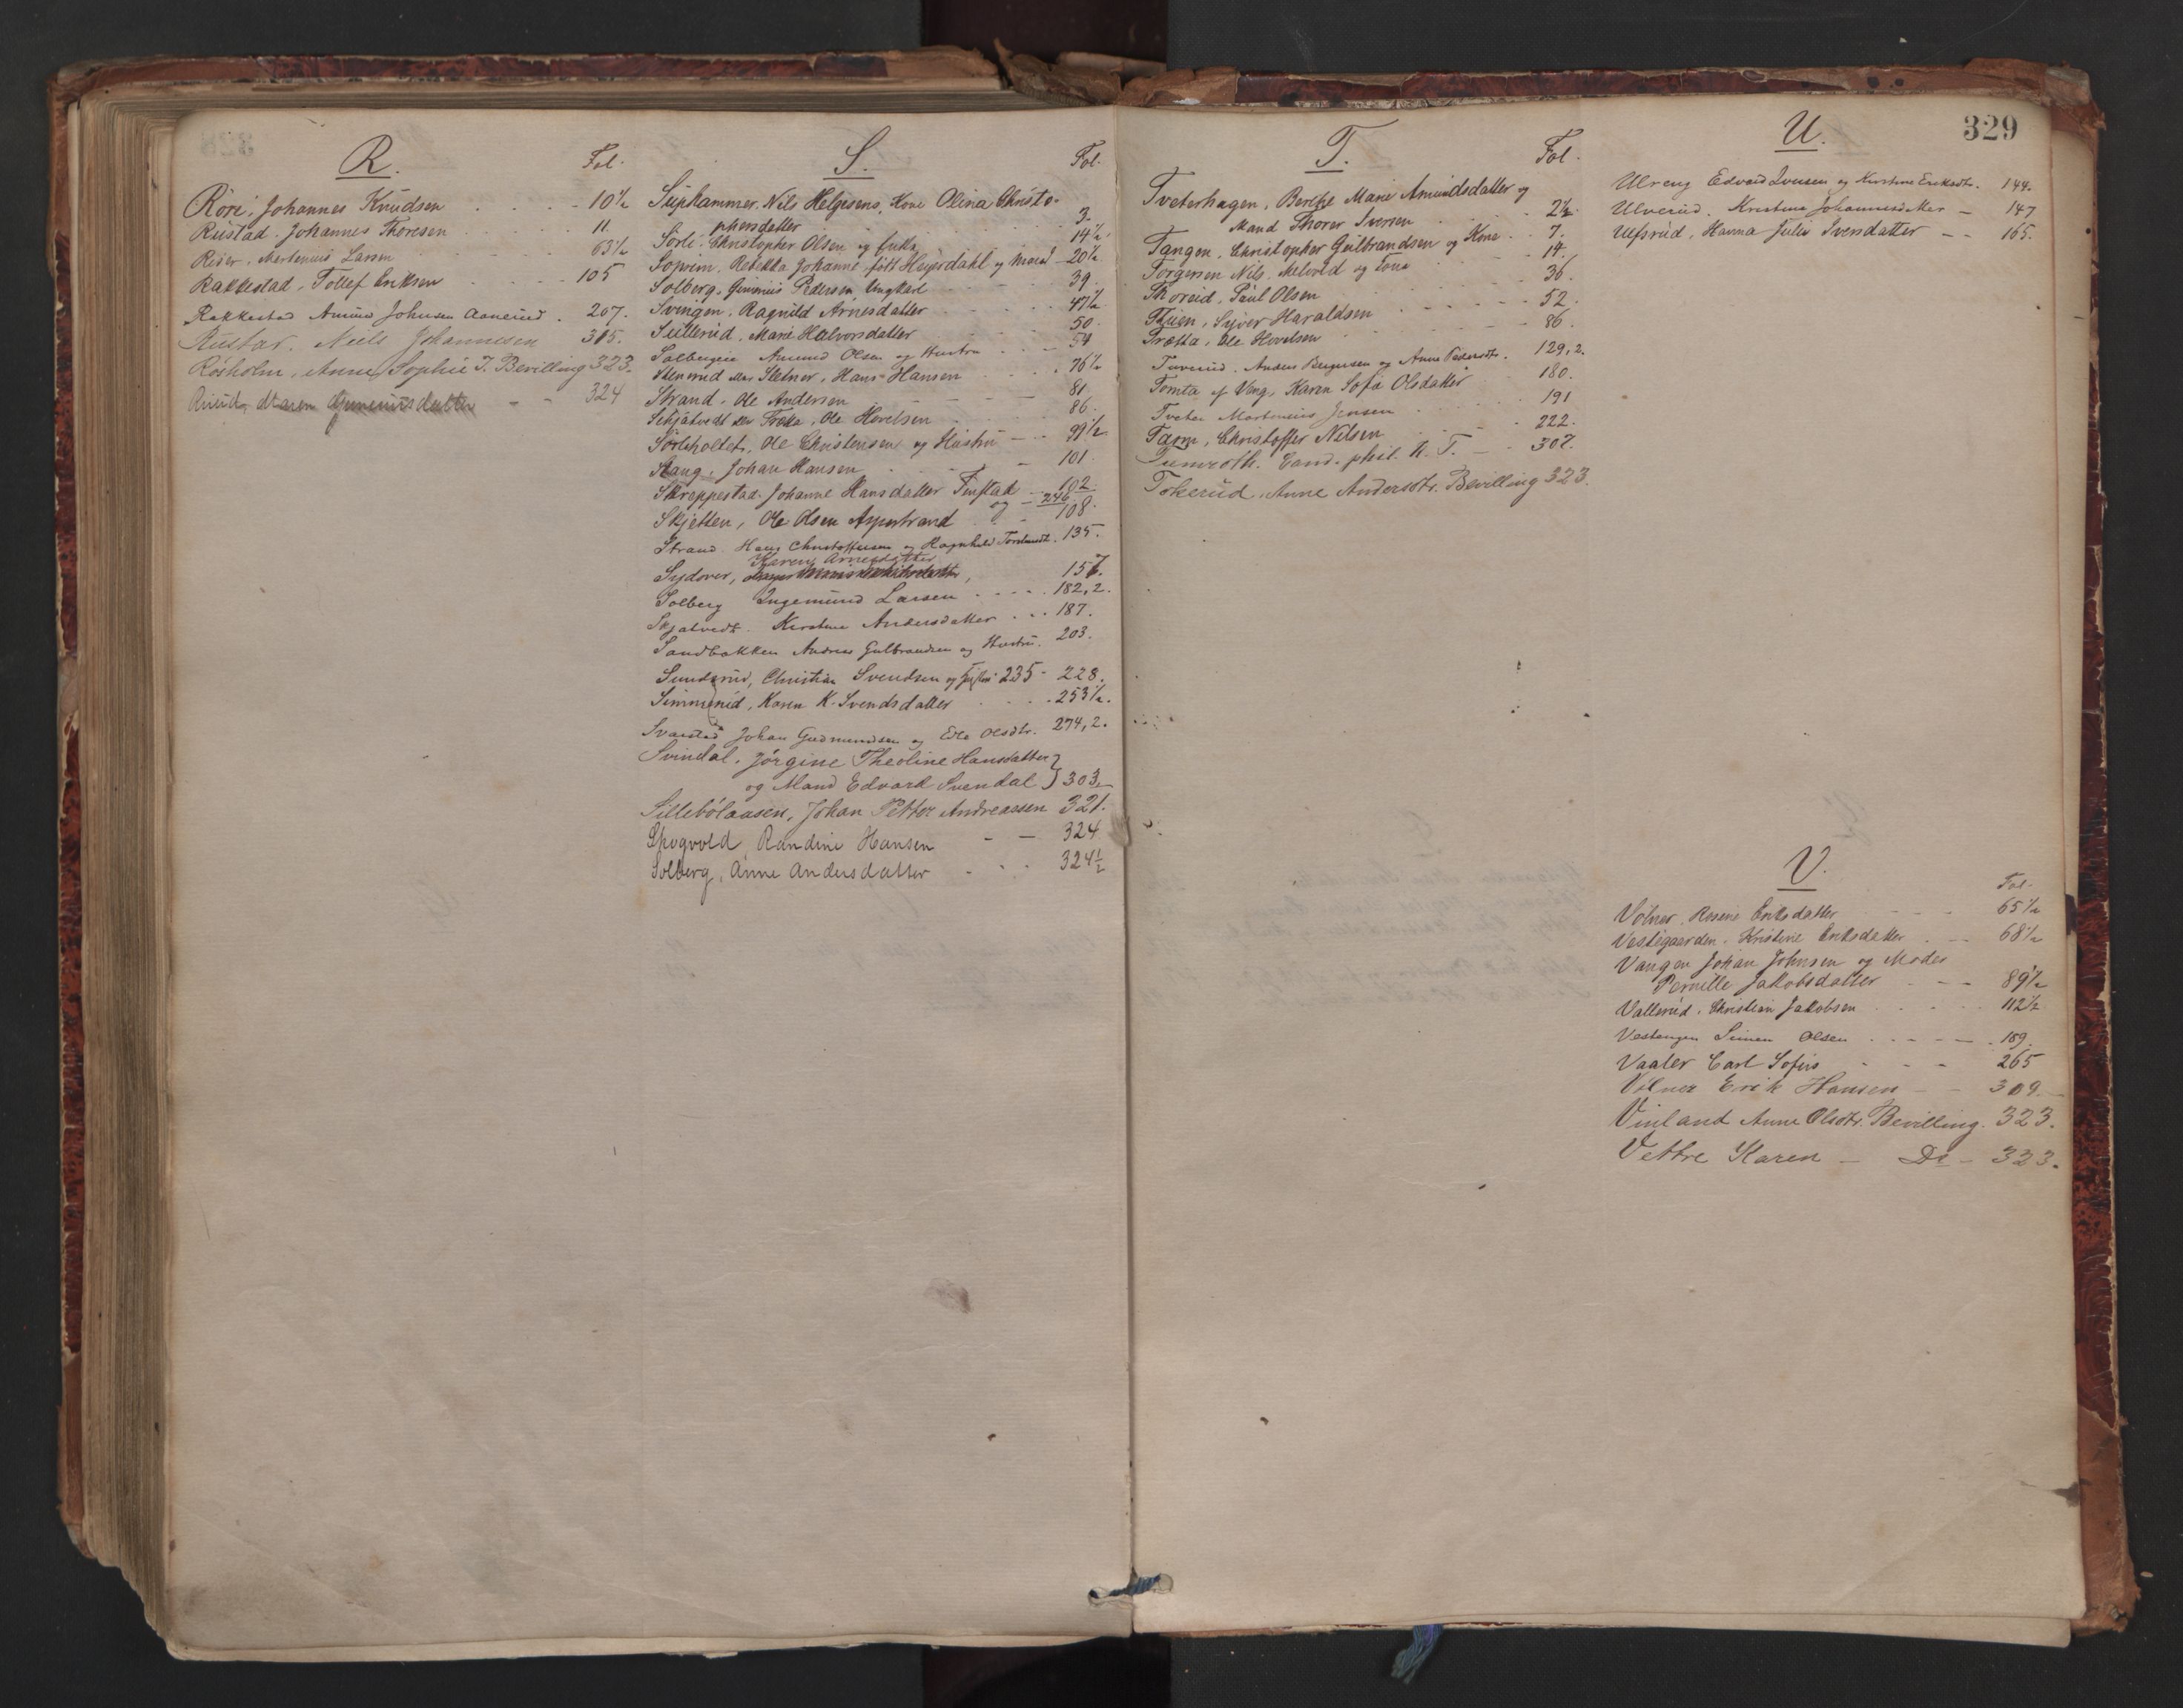 R.
Fol.
Röri, Johannes Knudsen 10½
Rustad. Johannes Thoresen 11
Reier, Martenius Larsen 63½
Rakkestad, Tollef Eriksen 105
Rakkestad Amund Johnsen Aanerud. 207.
Rustad. Niels Johannesen 305.
Rösholm, Anne Sophie J. Bevilling 323.
Maren Gunneriusdatter 324
S.
Fol.
Sliphammer, Nils Helgesens, Kone Olina Christo-
phersdatter 3.
Sörli. Christopher Olsen og 14½
Soprim, Rebekka Johanne født Heyerdahl og Mand 20½
Solberg, Gunnerius Pedersen Ungkarl 39.
Svingen, Ragnild Arnesdatter 47½
Sullerud, Marie Halvorsdatter 50.
Solbergeie Amund Olsen og Hustru 54
Stenerud eller Sletner, Hans Hansen 76½
Strand, Ole Andersen 81.
Skjátvedt eller Træta, Ole Hovelsen 86.
Sörliholtet, Ole Christensen og Hustru 99½
Stang, Johan Hansen 101
Skreppestad. Johanne Hansdatter Finstad 102
og 246
Skjetten, Ole Olsen Aspestrand 108.
Strand. Hans Christoffersen og Ragnhild 135.
Karen Arnesdatter
Sydover, 157.
Solberg Ingemund Larsen 182,2.
Skjatvedt. Kirstine Andersdatter 187.
Sandbakken Andreas Gulbrandsen og Hustru. 203.
Sunderud, Christian Svendsen og 235 - 228.
Simmerud, Karen K. Svendsdatter 253½.
Svarstad Johan Gudmundsen og Edle Olsdtr. 274,2.
Svindal, Jörgine Theoline Hansdatter
og Mand Edvard Svendal } 303.
Sillebölaasen, Johan Petter Andreassen 321.
Skogvold, Randine Hansen 324
Solberg, Anne Andersdatter 324½
T.
Fol.
Tveterhagen, Berthe Marie Amundsdatter og
Mand Thorer Iversen 2½.
Tangen, Christopher Gulbrandsen og Kone 7.
Torgersen Nils, Melvold og Kone 14.
Thoreid, Paul Olsen 36.
Thuen, Syver Haraldsen 52.
Trætta, Ole Hovelsen 86.
Tuverud. Anders Bergersen og Anne Pedersdtr. 129,2.
Tomta af Vang, Karen Sofie Olsdatter 180.
Tveter Martenius Jensen 191
Tarm, Christoffer Nilsen 222.
Tumroth. Cand. phil. N. T. 307.
Tokerud, Anne Andersdtr. Bevilling 323.
U.
329
Ulreng Edvard Iversen og Kirstine Eriksdtr. 144.
Ulverud. Kristine Johannesdatter 147
Ulfsrud, Hanna Julie Iversdatter 165.
V.
Fol.
Völner, Rosine Eriksdatter 65½
Vestegaarden, Kristine Eriksdatter 68½
Vangen Johan Johnsen og Moder
Pernille Jakobsdatter 89½
Vallerud, Christian Jakobsen 112½
Vestengen Simen Olsen 189.
Vaaler Carl Sofus 265
Völner Erik Hansen 309.
Vinland Anne Olsdtr. Bevilling. 323.
Vettre Karen — Do — 323.